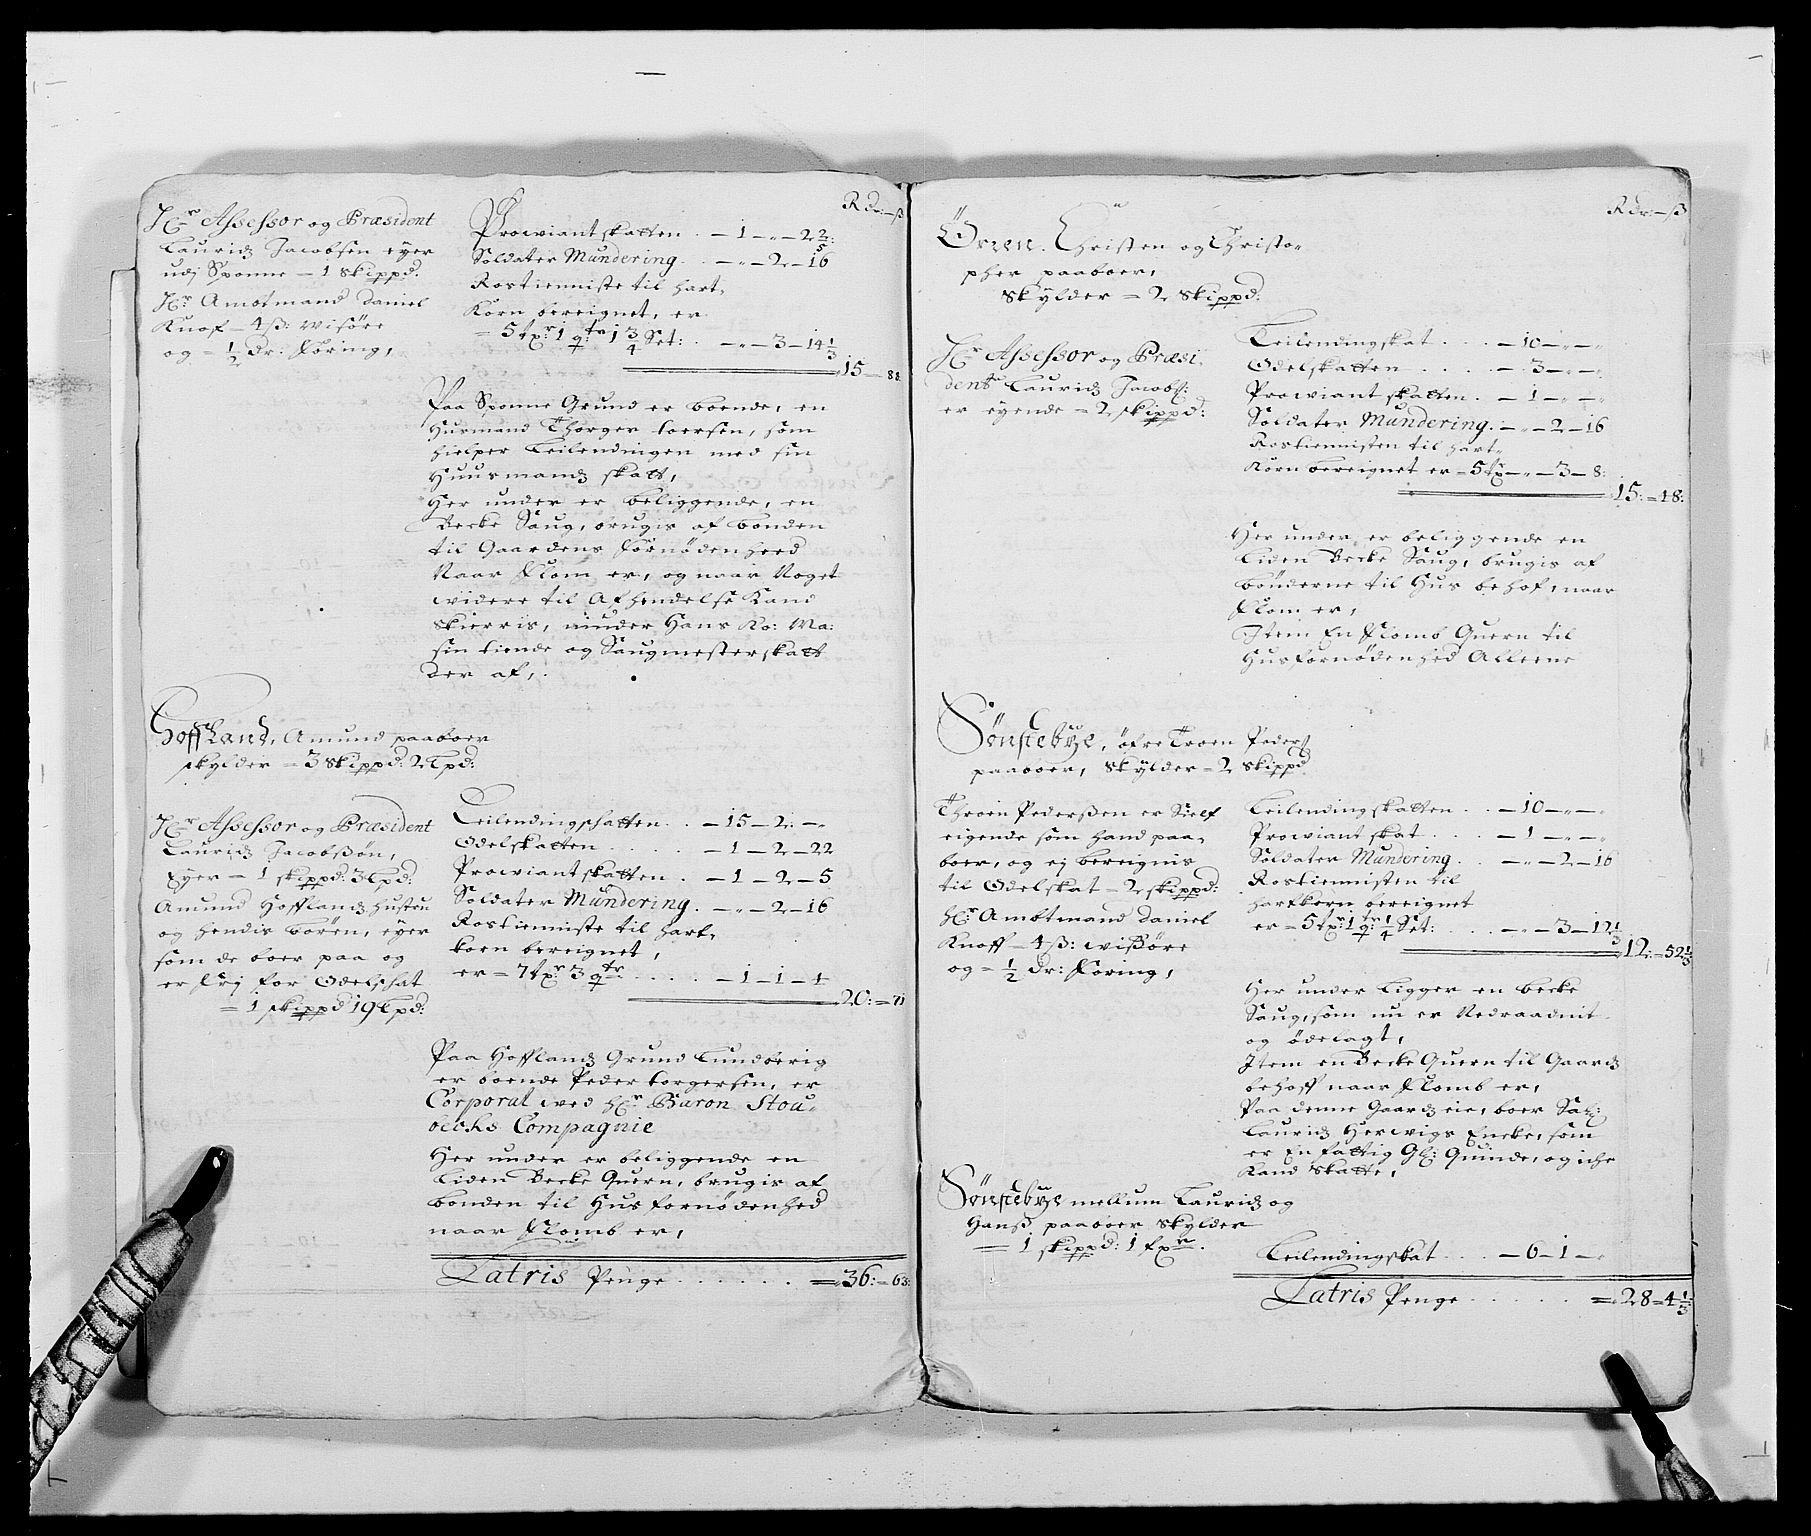 Rdr:—ß
Hr Assessor og Præsident
Lauridz Jacobsen eyer
udj Sponne — 1 skippd.
Hr Ambtmand Daniel
Knof — 4 ß: wisøre
og = 1/2 dr: Føring,
Prowiantskatten . — 1 — „ — 2 2/5:
Soldater Mundering . — „ — 2 — 16
Rostienniste til hart,
Korn bereignet, er
= 5 tx:r 1 q:tr 1 3/4 Set: . — „ — 3 — 14 1/3
15 — 88
Paa Sponne Grund er boende, en
Husmand Thorger loersen, som
hielper Leilendingen med sin
Huusmandz skatt,
Her under er beliggende, en
Becke Saug, brugis af bonden
til Gaardens Fornødenheed
Naar Flom er, og naar Noget
widere til Afhendelse Kand
skierris, niuder Hans Ko: Ma:
sin tiende og Saugmesterskatt
der af,
Hoffland, Amund paaboer
skylder = 3 skippd: 2 Lpd:
Hr Assessor og Præsident
Lauridz Jacobßøn,
Eyer = 1 skippd: 3 Lpd:
Amund Hofflandz hustru
og hendis børen, eyer
som de boer paa og
er frj for Odelschat
= 1 skippd 19 Lpd:
Leilendingschatten . — 15 — 2 — „
Odelskatten . . . . . — 1 — 2 — 22
Prowiantskatten . — 1 — 2 — 5
Soldater Mundering . — „ — 2 — 16
Rostienniste til hart,
korn bereignet,
er = 7 tx:r 3 q:tr . . . . — 1 — 1 — 4
20: = 71
Paa Hofflandz Grund Lundberig
er boende Peder borgersen, er
Corporal wed hr Baron Stou-
bechs Compagnie
Her under er beliggende en
Liden Becke Quern, brugis af
bonden til Hus fornødenhed
naar Flomb er,
Latris Penge . . . . . . = 36: = 63:
Rdr:—ß
Ørsen. Christen og Christo=
pher paaboer,
skylder = 2 skippd:
Hr Assessor og Præsi
dent Lauridz Jacobß:
er eyende = 2 skippd:
Leilendingskat . . . — 10 — „ — „
Odelskatten . . . . . — 3 — „ — „
Prowiantskatten . — 1 — „ — „
Soldater Mundering . — „ — 2 — 16
Rostiennisten til hart,
Korn bereignet er = 5 tx — „ — 3 — 8:
15: = 18:
Her under, er beliggende en
Liden Becke Saug, brugis af
bønderne til Hus behof, naar
Flom er,
Item En Flomb Quern til
Husfornødenhed Alleene
Sønstebye, øfre Troen Pederß
paaboer, skylder = 2 skippd
Throen Pederßen er Sielf
eigende som hand paa=
boer, og ej bereignis
til Odelskat = 2 skippd:
hr Ambtmand Daniel
Knoff — 4 ß: wißøre
og = 1/2 dr: Føring,
Leilendingskatten . . . — 10 — „ — „
Prowiantskat . . . . — 1 — „ — „
Soldater Mundering . . — „ — 2 — 16
Rostiennisten til
hartkorn bereignet
er = 5 tx:r 1 q:tr 1/4 Set: . . — „ — 3 — 12 1/3
12: = 52 1/3
Her under Ligger en becke
Saug, som nu er Nedraadnit
og ødelagt,
Item en Becke Quern til Gaardz
behoff naar Flomb er,
Paa denne Gaardz eie, boer Sal:
Lauridz Herwigs Encke, som
er En fattig Gl: Quinde, og iche
Kand skatte,
Sønstebye mellum Lauridz og
Hanß paaboer skylder
= 1 skippd: 1 fxr.
Leilendingskat . . . — 6 — 1 — „
Latris Penge . . . . . . = 28 = 4 1/3